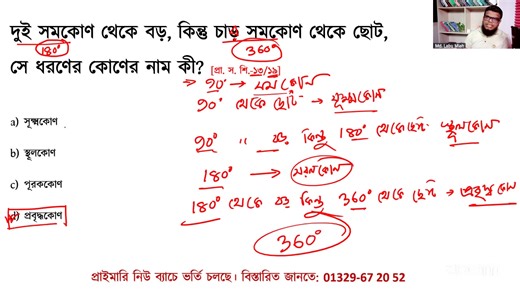 দুই সমকোণ থেকে বড়, কিন্তু চাড় সমকোণ থেকে ছোট,
180° 360°
সে ধরণের কোণের নাম কী? [প্রা. স. শি.-১৩/১৯]
৯০° → সমকোন
a) সূক্ষ্মকোণ
৯০° থেকে ছোট → সূক্ষ্মকোন
b) স্থূলকোণ
৯০° " বড় কিন্তু 180° থেকে ছোট স্থূলকোন
180° → সরলকোন
c) পূরককোণ
180° থেকে বড় কিন্তু 360° থেকে ছোট → প্রবৃদ্ধ কোন
d) প্রবৃদ্ধকোণ
360°
প্রাইমারি নিউ ব্যাচে ভর্তি চলছে। বিস্তারিত জানতে: 01329-67 20 52
Md. Labu Miah